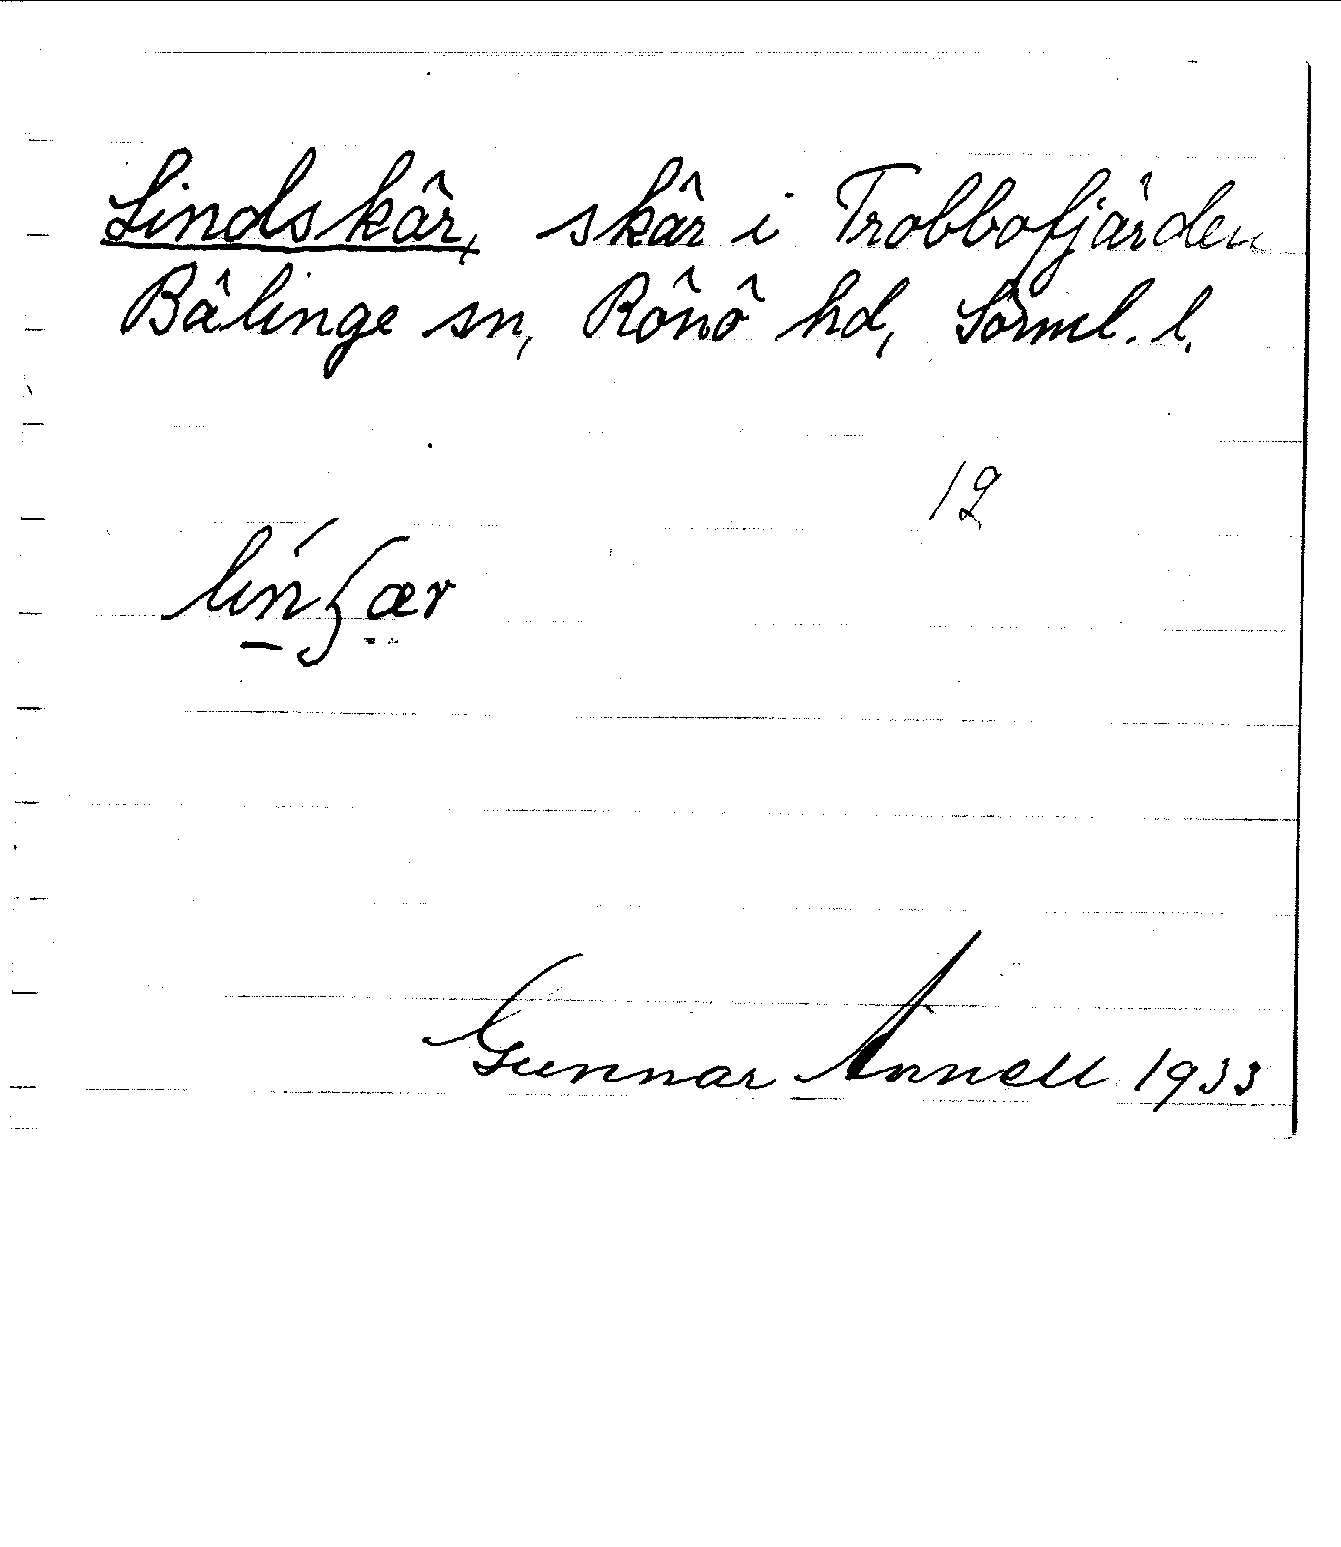 Lindskär, skär i Trobbofjärden
Bälinge sn, Rönö hd, Sörml. l.
12
línʃær
Gunnar Annell 1933